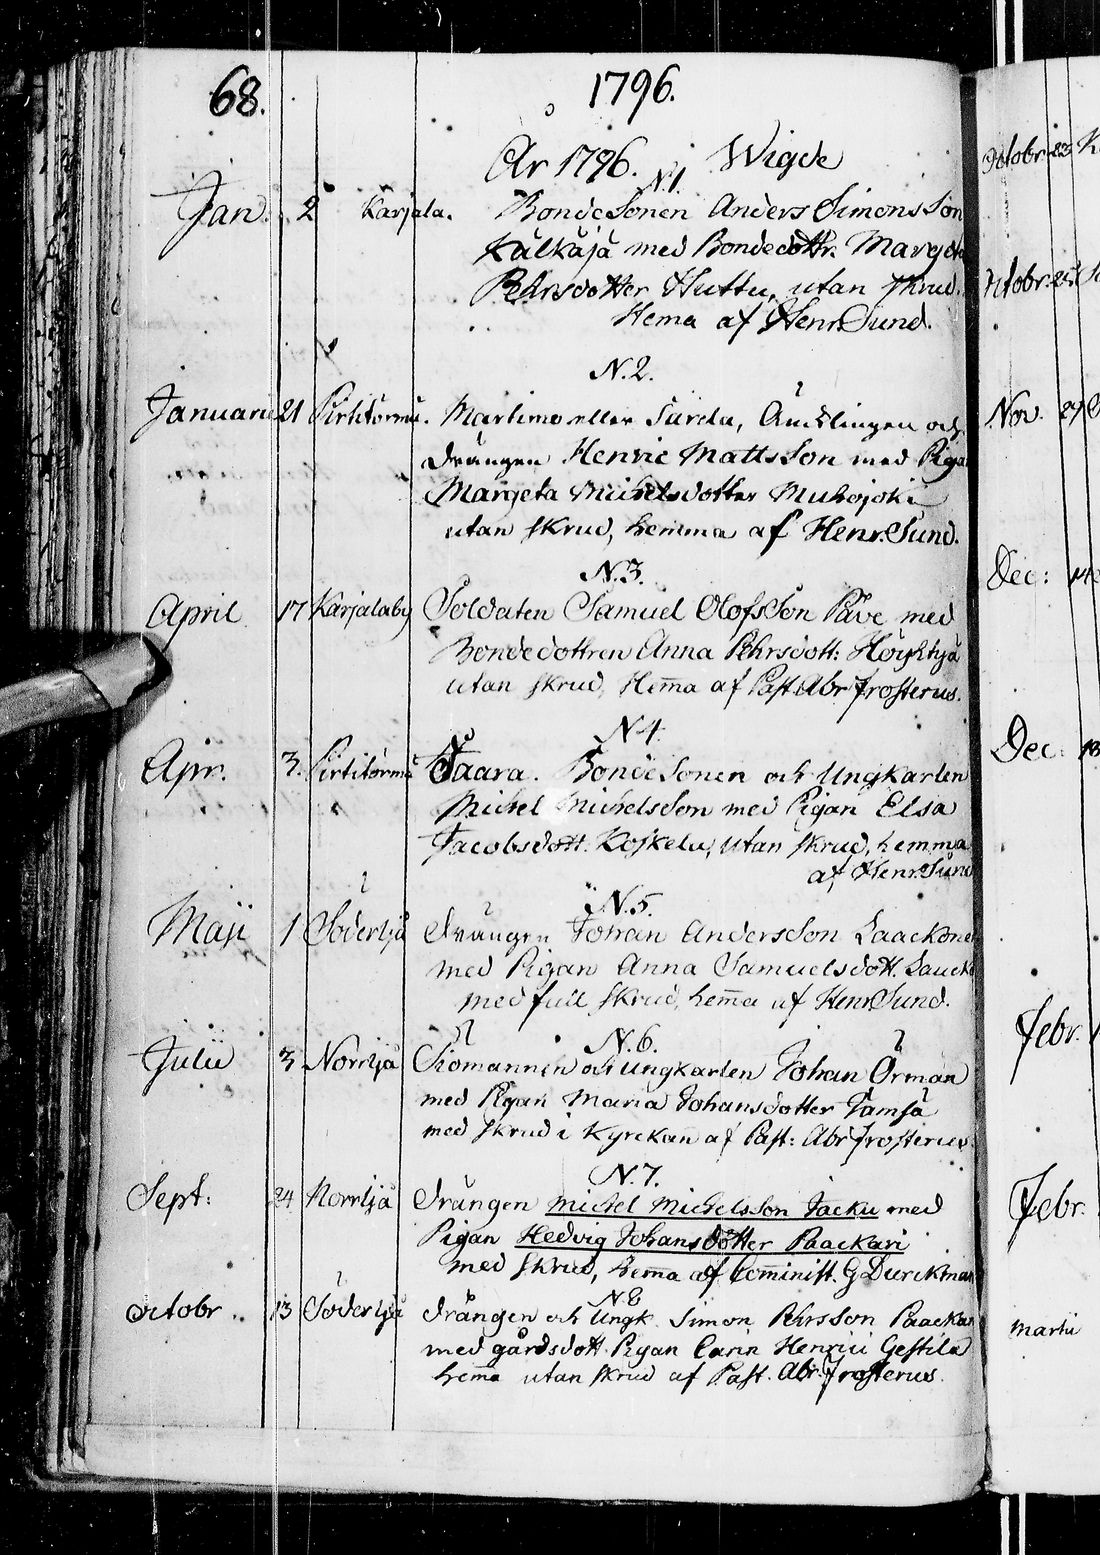 68. 1796.
År 1796. Wigde
N.1.
Jan. 2 Karjala. BondeSonen Anders Simons Son
Kälkäjä med Bondedottr. Marg
Pehrsdotter Huttu, utan skrud.
Hema af Henr. Sund.
N.2.
Januarii 21 Pirtitörmä. Martimo eller Sarela, Äncklingen och
drängen Henric Matts Son med Pigan
Margeta Michelsdotter Muhojoki
utan skrud, hemma af Henr. Sund.
N.3.
April 17 Karjalaby Soldaten Samuel Olofs Son Päve med
Bondedottren Anna Pehrsdott:
utan skrud, Hem̄a af Past. Abr Frosterus.
N.4.
Apr. 3. Pirtitörmä Saara. BondeSonen och Ungkarlen
Michel Michelsson med Pigan Elsa
Jacobsdott. Koskelu, utan skrud, hemma
af Henr. Sund
N.5.
Maji 1 Söderljä drängen Johan Andersson Laackone
med Pigan Anna Samuelsdott. Lauck
med full skrud, hem̄a af Henr Sund.
N.6.
Julii 3 Norrljä Siömannen och ungkarlen Johan Örman
med Pigan Maria Johansdotter Jamsä
med skrud i Kyrckan af Past: Abr Frosterus.
N.7.
Sept: 24 Norrljä Drängen Michel Michelsson Jacku med
Pigan Hedvig Johans dotter Paackari
med skrud, hem̄a af Com̄inist. G Durckman
N 8
Octobr.. 13 Söderljä drängen och Ungk. Simon Pehrsson Paackari
med gårdsdott. Pigan Carin Henrici Gestilä
hema utan skrud af Past. Abr. Frosterus.
Octobr. 23 K
Octobr. 25
Nov. 27
Dec: 14
Dec: 18
Febr.
Febr.
Martii